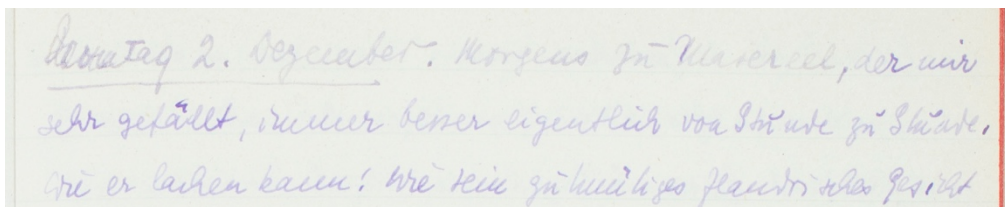 Sonntag 2. Dezember. Morgens zu Masereel, der mir
sehr gefällt, immer besser eigentlich von Stunde zu Stunde.
Wie er lachen kann! Wie sein gutmütiges flandrisches Gesicht